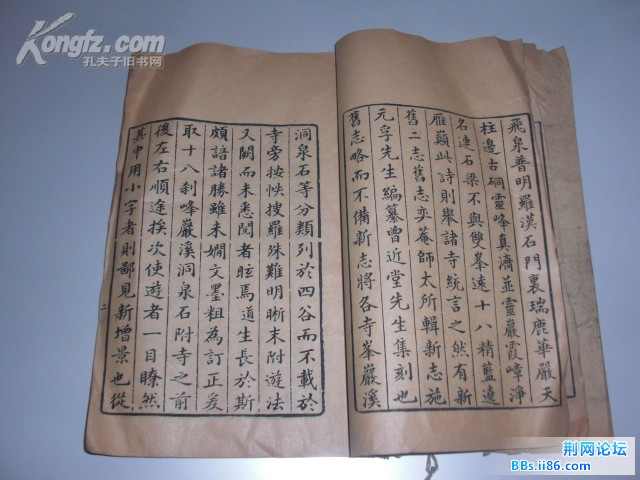 Kongfz.com
孔夫子旧书网
飛泉普明羅漢石門裏瑞鹿華嚴天
柱邊古硐靈峰真濟並靈巖霞嶂淨
名連石梁不與雙峯遠十八精藍遶
雁巔此詩則舉諸寺統言之然有新
舊二志舊志奕菴師太所輯新志施
元孚先生編纂曾近堂先生集刻也
舊志略而不備新志將各寺峯巖溪
洞泉石等分類列於四谷而不載於
寺旁按帙搜羅殊難明晰末附遊法
又闕而未悉閱者眩焉道生長於斯
頗諳諸勝雖未嫺文墨粗為訂正爰
取十八刹峰巖溪洞泉石附寺之前
後左右順途挨次使遊者一目瞭然
其中用小字者則鄙見新增景也從
二
荆网论坛
BBs.ii86.com